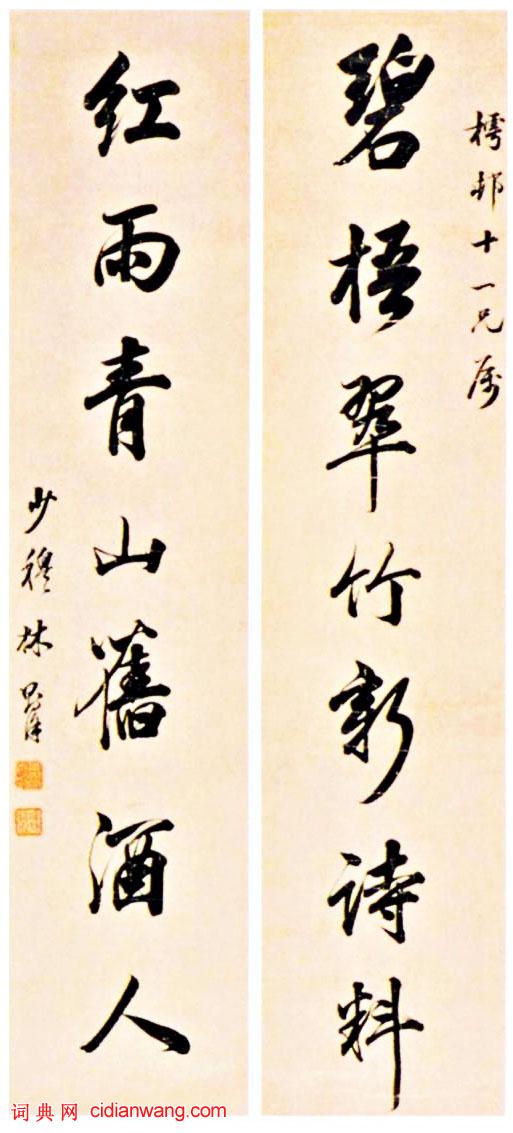 樗邨十一兄属
碧梧翠竹新诗料
红雨青山舊酒人
少穆林則徐
词典网 cidianwang.com